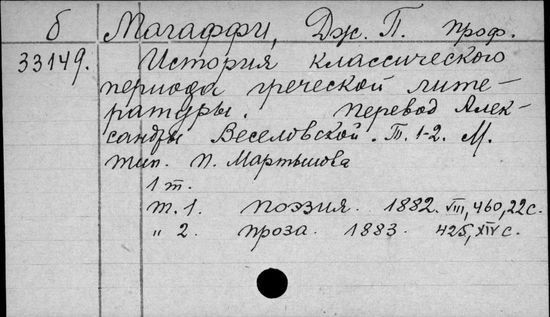 б Магаффи, Дж. П. проф.
33149. История классического
периода греческой лите-
ратуры. перевод Алек-
сандры Веселовской. Т. 1-2. М.
тип. П. Мартынова
1 т.
т. 1. поэзия. 1882. VIII, 460, 22 с.
" 2. проза. 1883. 425, XIV с.